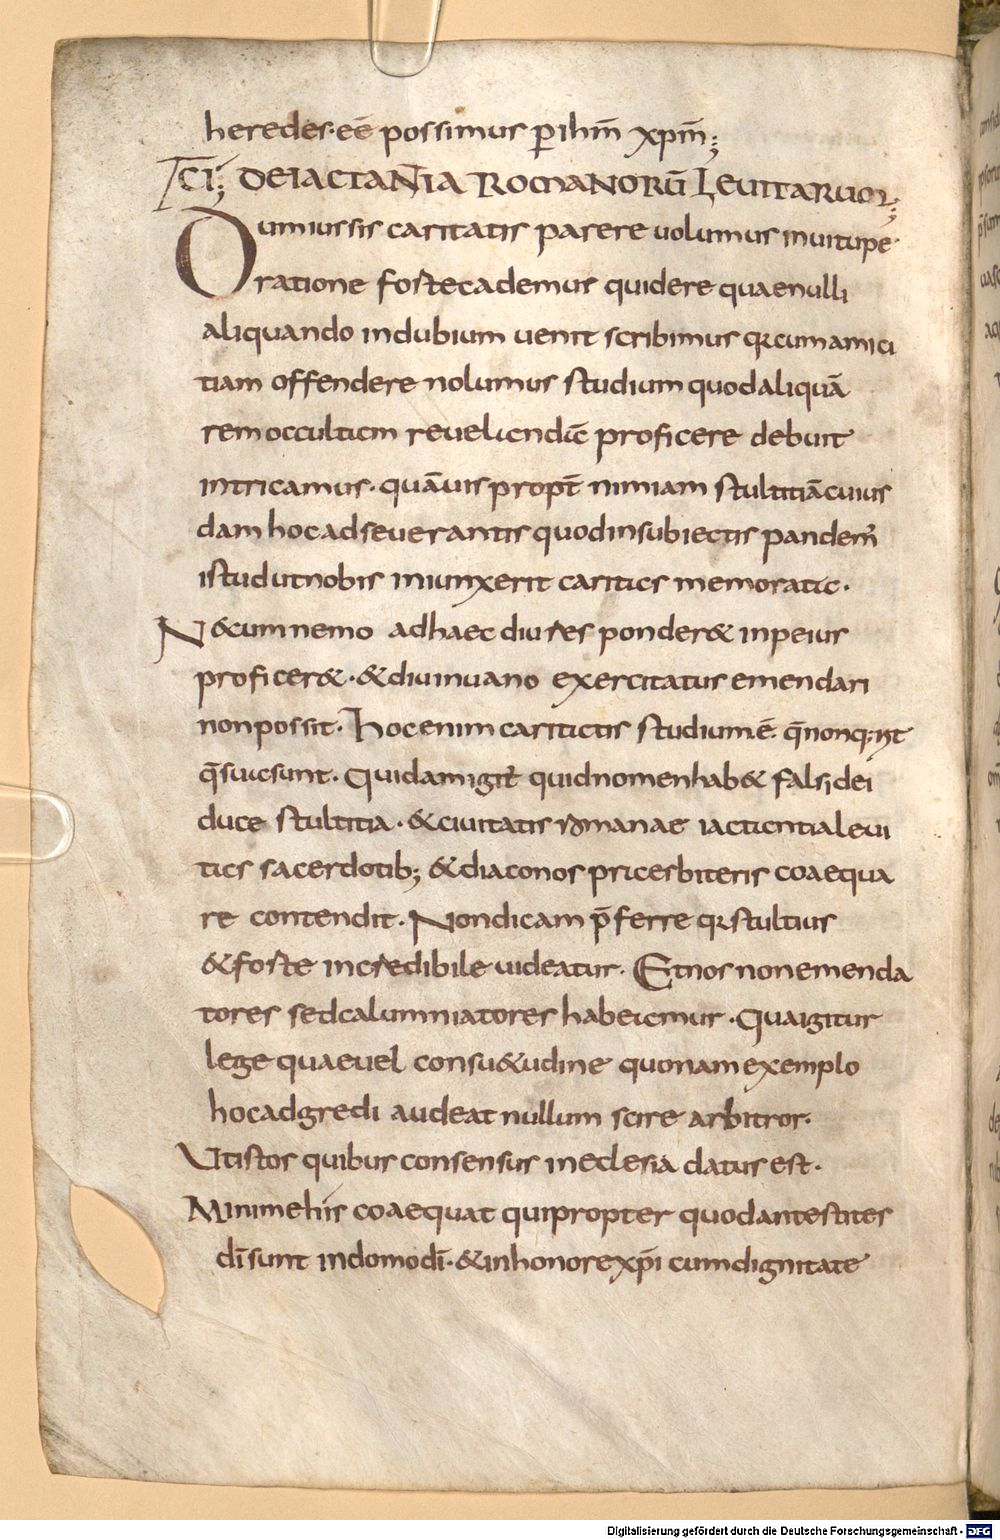 heredes·eē possimus ꝑ ihm̄ xpm̄;
TCĪ; DEIACTANIA ROMANORŪ LEUITARUOR;
Qumiussis caritatis parere uolumus inuitupe
Oratione fostecademus quidere quaenulli
aliquando indubium uenit scribimus q̄cumamici
tiam offendere nolumus studium quodaliquā
rem occultam reuelandae proficere debuit
intricamus· quāuis propt̄ nimiam stultitiācuius
dam hocadseuerantis quodinsubiectis pandem̄
istudutnobis iniunxerit caritas memorata·
N&cumnemo adhaec diu res ponder& inpeius
proficer&·&diuinuano exercitatus emendari
nonpossit· hocenim caritatis studium ē· q̄nonq;
q̄suasunt· Quidamigit̄ quidnomenhab& falsidei
duce stultitia·&ciuitatis romanae iactantialeui
tas sacerdotib; &diaconos praesbiteris coaequa
re contendit· Nondicam p̄ferre q̄stultius
&foste incredibile uideatur· Etnos nonemenda
tores sedcalumniatores habeamur· Quaigitur
lege quaeuel consu&udine quonam exemplo
hocadgredi audeat nullum scire arbitror·
Utistos quibus consensus ineclesia datus est·
Minimehis coaequat quipropter quodantestites
dī sunt indomodī·&inhonorexpī cumdignitate
Digitalisierung gefördert durch die Deutsche Forschungsgemeinschaft - DFG